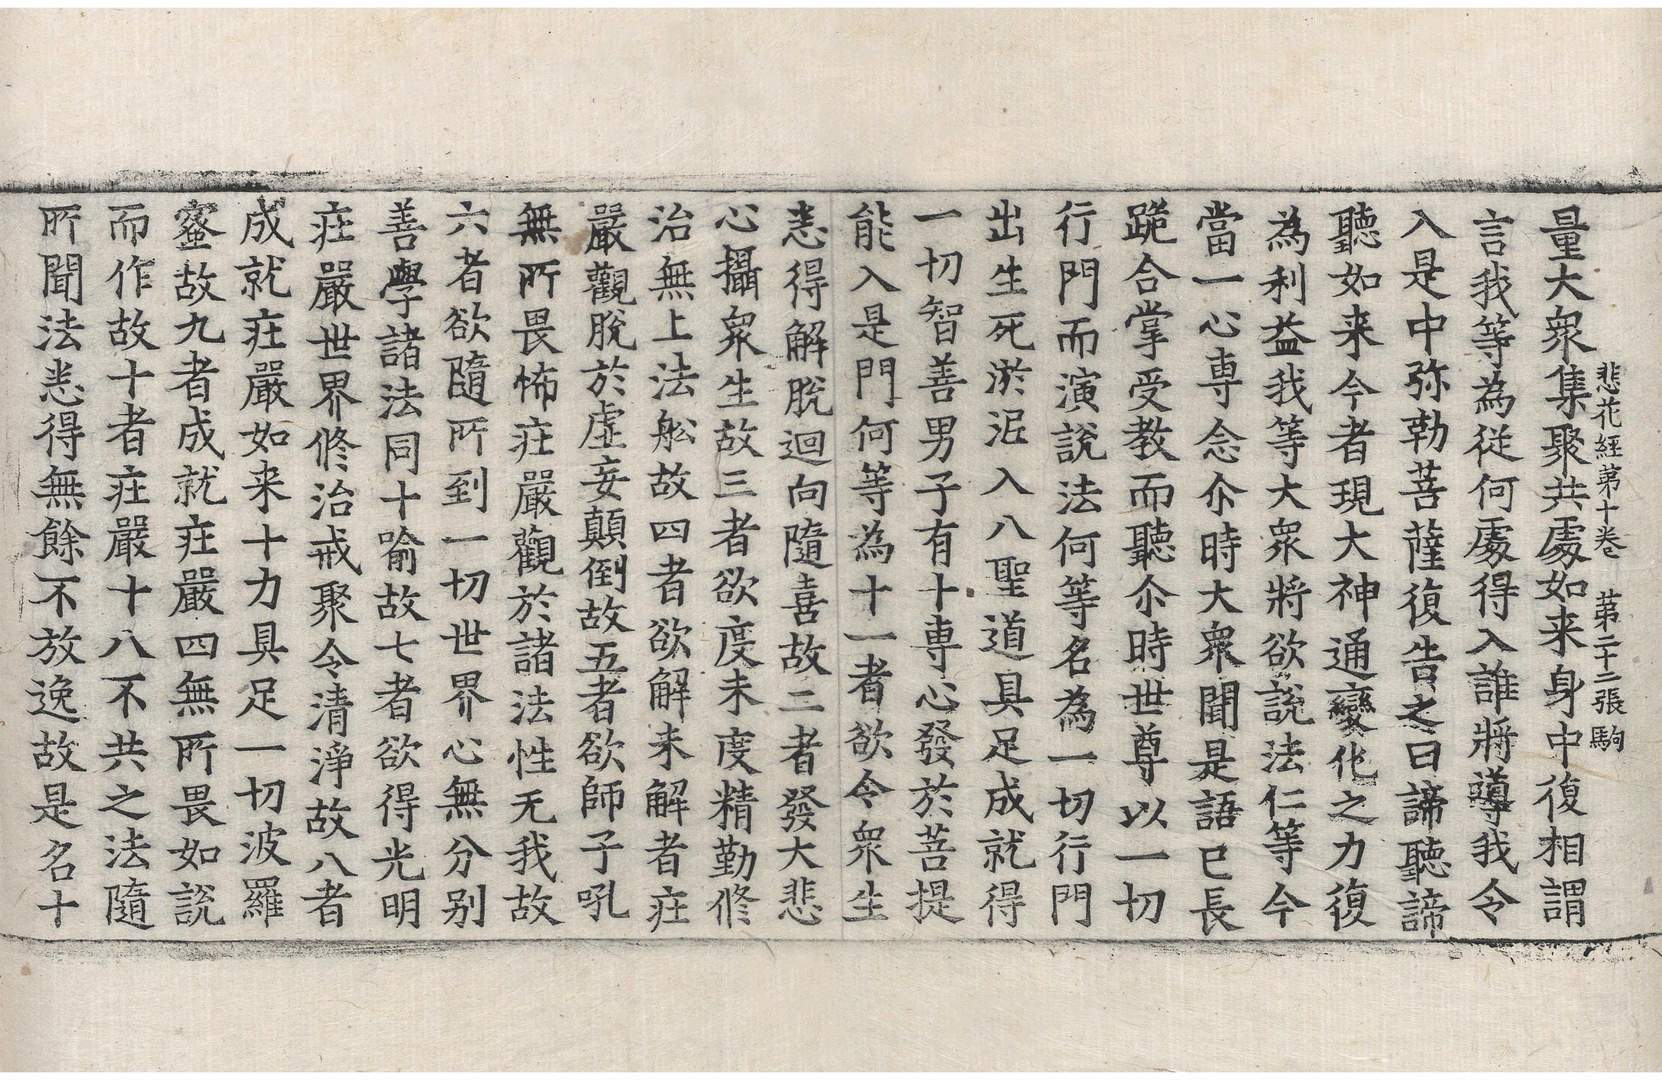 悲花經第十卷 第二十二張 駒
量大衆集聚共處如来身中復相謂
言我等為従何處得入誰將導我令
入是中弥勒菩薩復告之曰諦聽諦
聽如来今者現大神通變化之力復
為利益我等大衆將欲說法仁等今
當一心専念尒時大衆聞是語已長
跪合掌受教而聽尒時世尊以一切
行門而演說法何等名為一切行門
出生死淤泥入八聖道具足成就得
一切智善男子有十専心發於菩提
能入是門何等為十一者欲令衆生
悉得解脫迴向隨喜故二者發大悲
心攝衆生故三者欲度未度精勤修
治無上法舩故四者欲解未解者莊
嚴觀脫於虛妄顛倒故五者欲師子吼
無所畏怖莊嚴觀於諸法性无我故
六者欲隨所到一切世界心無分别
善學諸法同十喻故七者欲得光明
莊嚴世界修治戒聚令清淨故八者
成就莊嚴如来十力具足一切波羅
蜜故九者成就莊嚴四無所畏如說
而作故十者莊嚴十八不共之法隨
所聞法悉得無餘不放逸故是名十